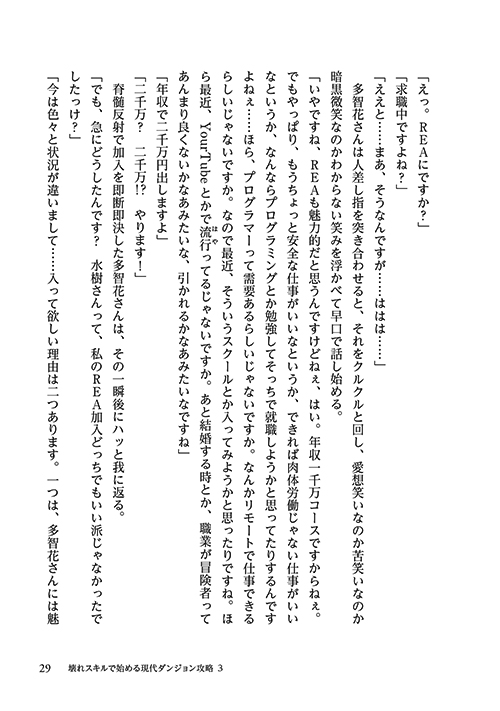 「えっ。ＲＥＡにですか？」
「求職中ですよね？」
「ええと……まあ、そうなんですが……ははは……」
　多智花さんは人差し指を突き合わせると、それをクルクルと回し、愛想笑いなのか苦笑いなのか
暗黒微笑なのかわからない笑みを浮かべて早口で話し始める。
「いやですね、ＲＥＡも魅力的だと思うんですけどねぇ、はい。年収一千万コースですからねぇ。
でもやっぱり、もうちょっと安全な仕事がいいなというか、できれば肉体労働じゃない仕事がいい
なというか、なんならプログラミングとか勉強してそっちで就職しようかと思ってたりするんです
よねぇ……ほら、プログラマーって需要あるらしいじゃないですか。なんかリモートで仕事できる
らしいじゃないですか。なので最近、そういうスクールとか入ってみようかと思ったりですね。ほ
ら最近、YourTubeとかで流行ってるじゃないですか。あと結婚する時とか、職業が冒険者って
はや
あんまり良くないかなあみたいな、引かれるかなあみたいなですね」
「年収で二千万円出しますよ」
「二千万？　二千万!?　やります！」
　脊髄反射で加入を即断即決した多智花さんは、その一瞬後にハッと我に返る。
「でも、急にどうしたんです？　水樹さんって、私のＲＥＡ加入どっちでもいい派じゃなかったで
したっけ？」
「今は色々と状況が違いまして……入って欲しい理由は二つあります。一つは、多智花さんには魅
29　壊れスキルで始める現代ダンジョン攻略 3